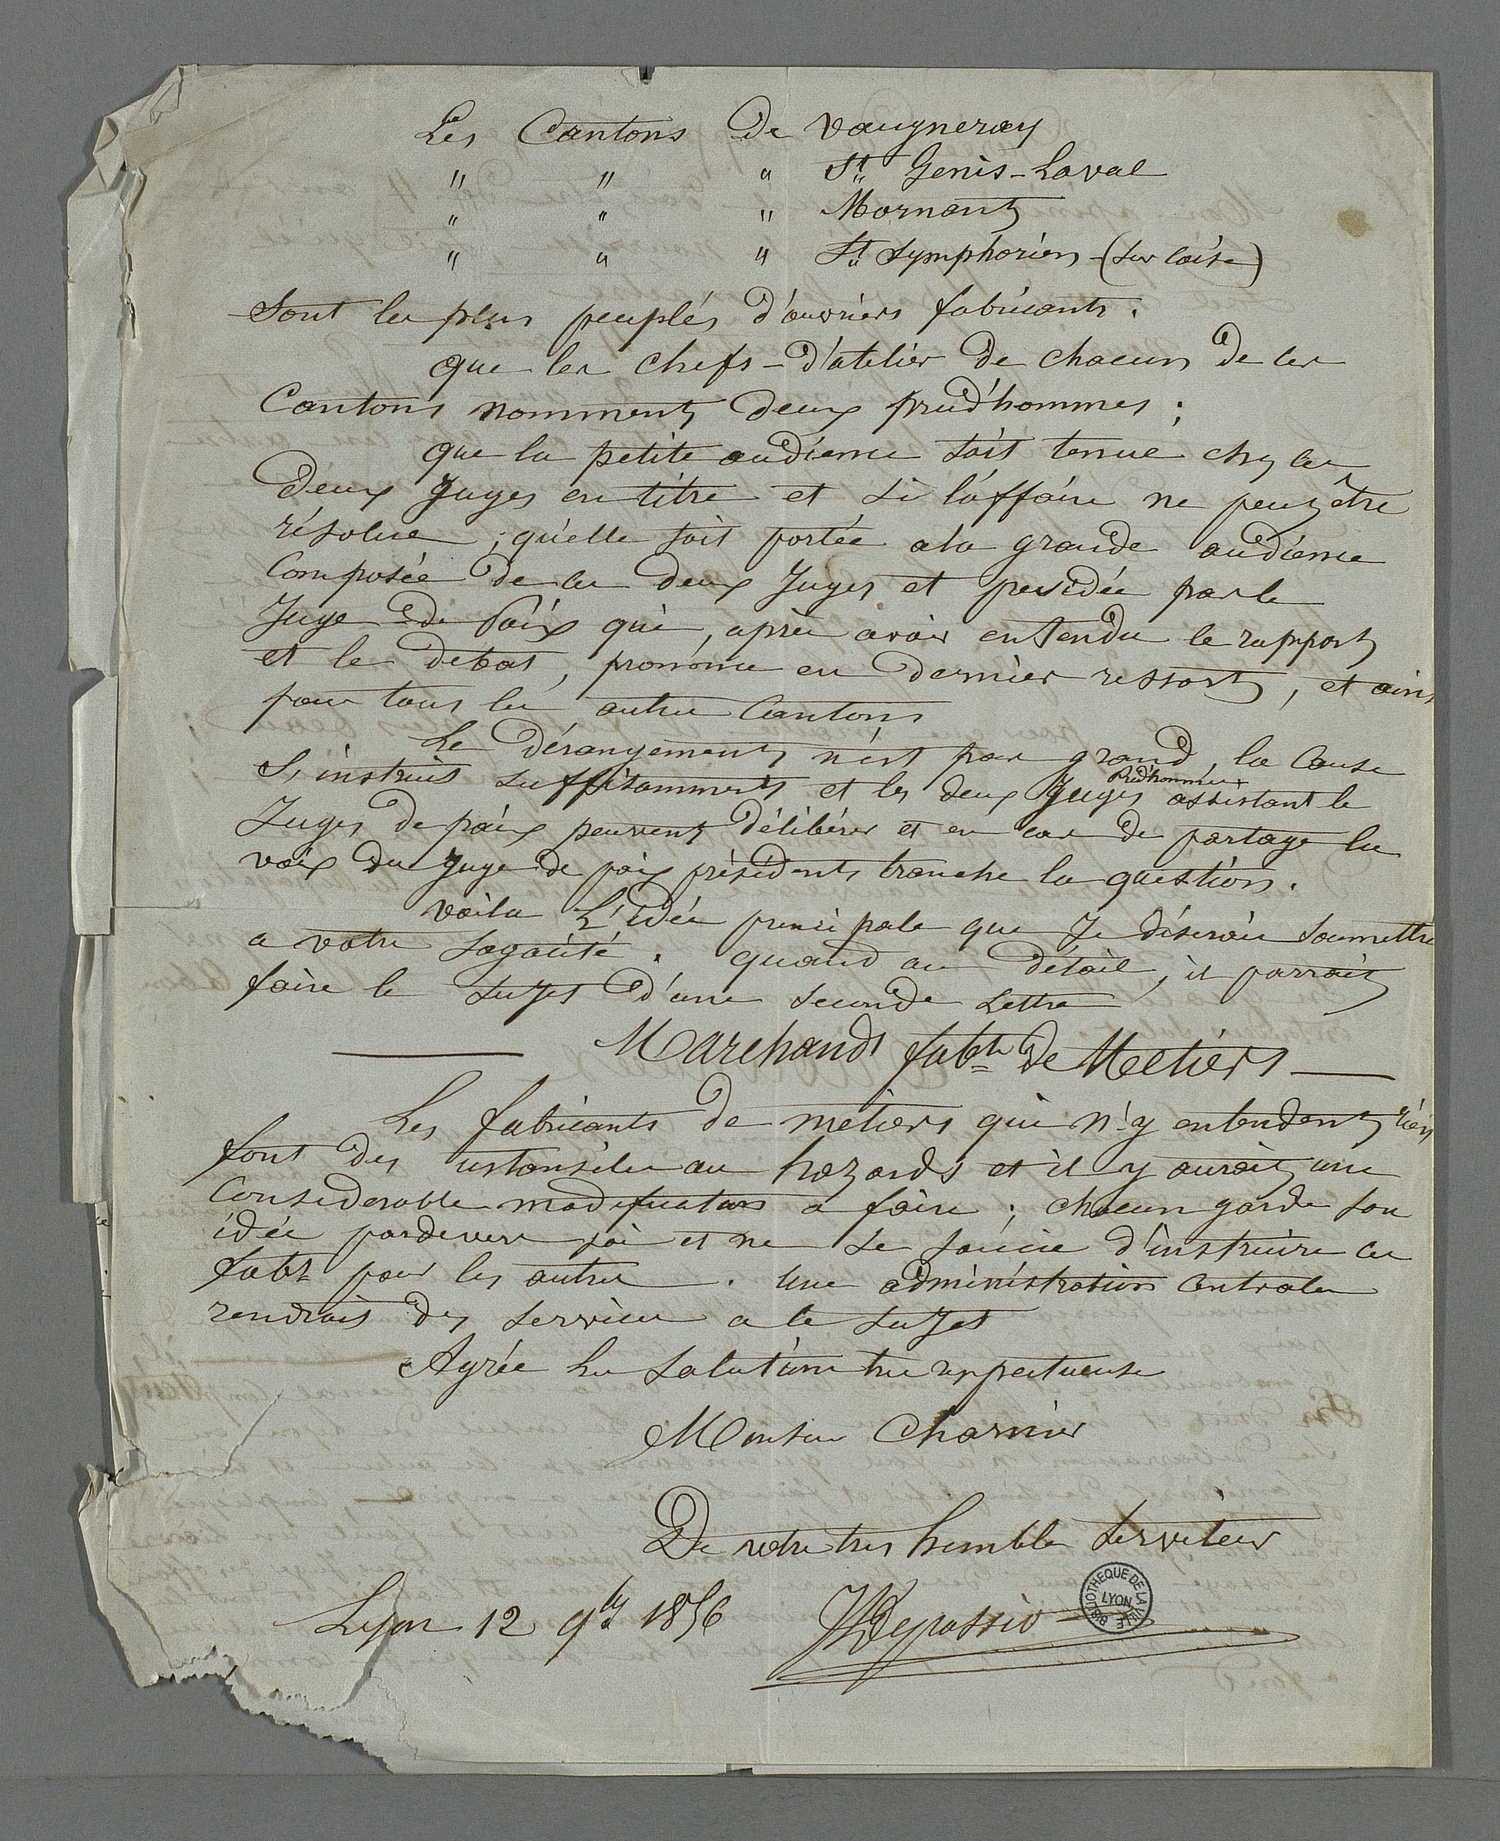 Les Cantons de Vaugneray
" " " St Genis-Laval
" " " Mornant
" " " St Symphorien (sur Coise)
Sont les plus peuplés d'ouvriers fabricants.
que les chefs-d'atelier de chacun de ces
Cantons nomment deux prud'hommes ;
que la petite audience soit tenue chez ces
deux Juges en titre et si l'affaire ne peut être
résolue ; qu'elle soit portée a la grande audience
Composée de ces deux Juges et présidée par le
Juge de Paix qui, après avoir entendu le rapport
et le debat, prononce en dernier ressort, et ainsi
pour tous les autres Cantons
Le dérangement n'est pas grand, la Cause
S'instruit suffisamment et les deux Juges Prud'hommes assistant le
Juges de paix peuvent délibérer et en cas de partage la
voix du Juge de paix président tranche la question.
Voila L'idée principale que Je désirais Soumettre
a votre Sagacité. quand au détail, il pourrait
faire le sujet d'une seconde Lettre
Marchands fabts de Metiers
Les fabricants de métiers qui n'y entendent rien
font des ustensiles au hazards et il y aurait une
Considerable modification a faire ; chacun garde son
idée pardevers soi et ne se soucie d'instruire ces
fabts pour les autres. Une administration Centrale
rendrait des services a ce sujet
Agrée les salutations respectueuse
Monsieur Charnier
De votre tres humble Serviteur
Lyon 12 9bre 1856
BIBLIOTHEQUE DE LA VILLE
LYON